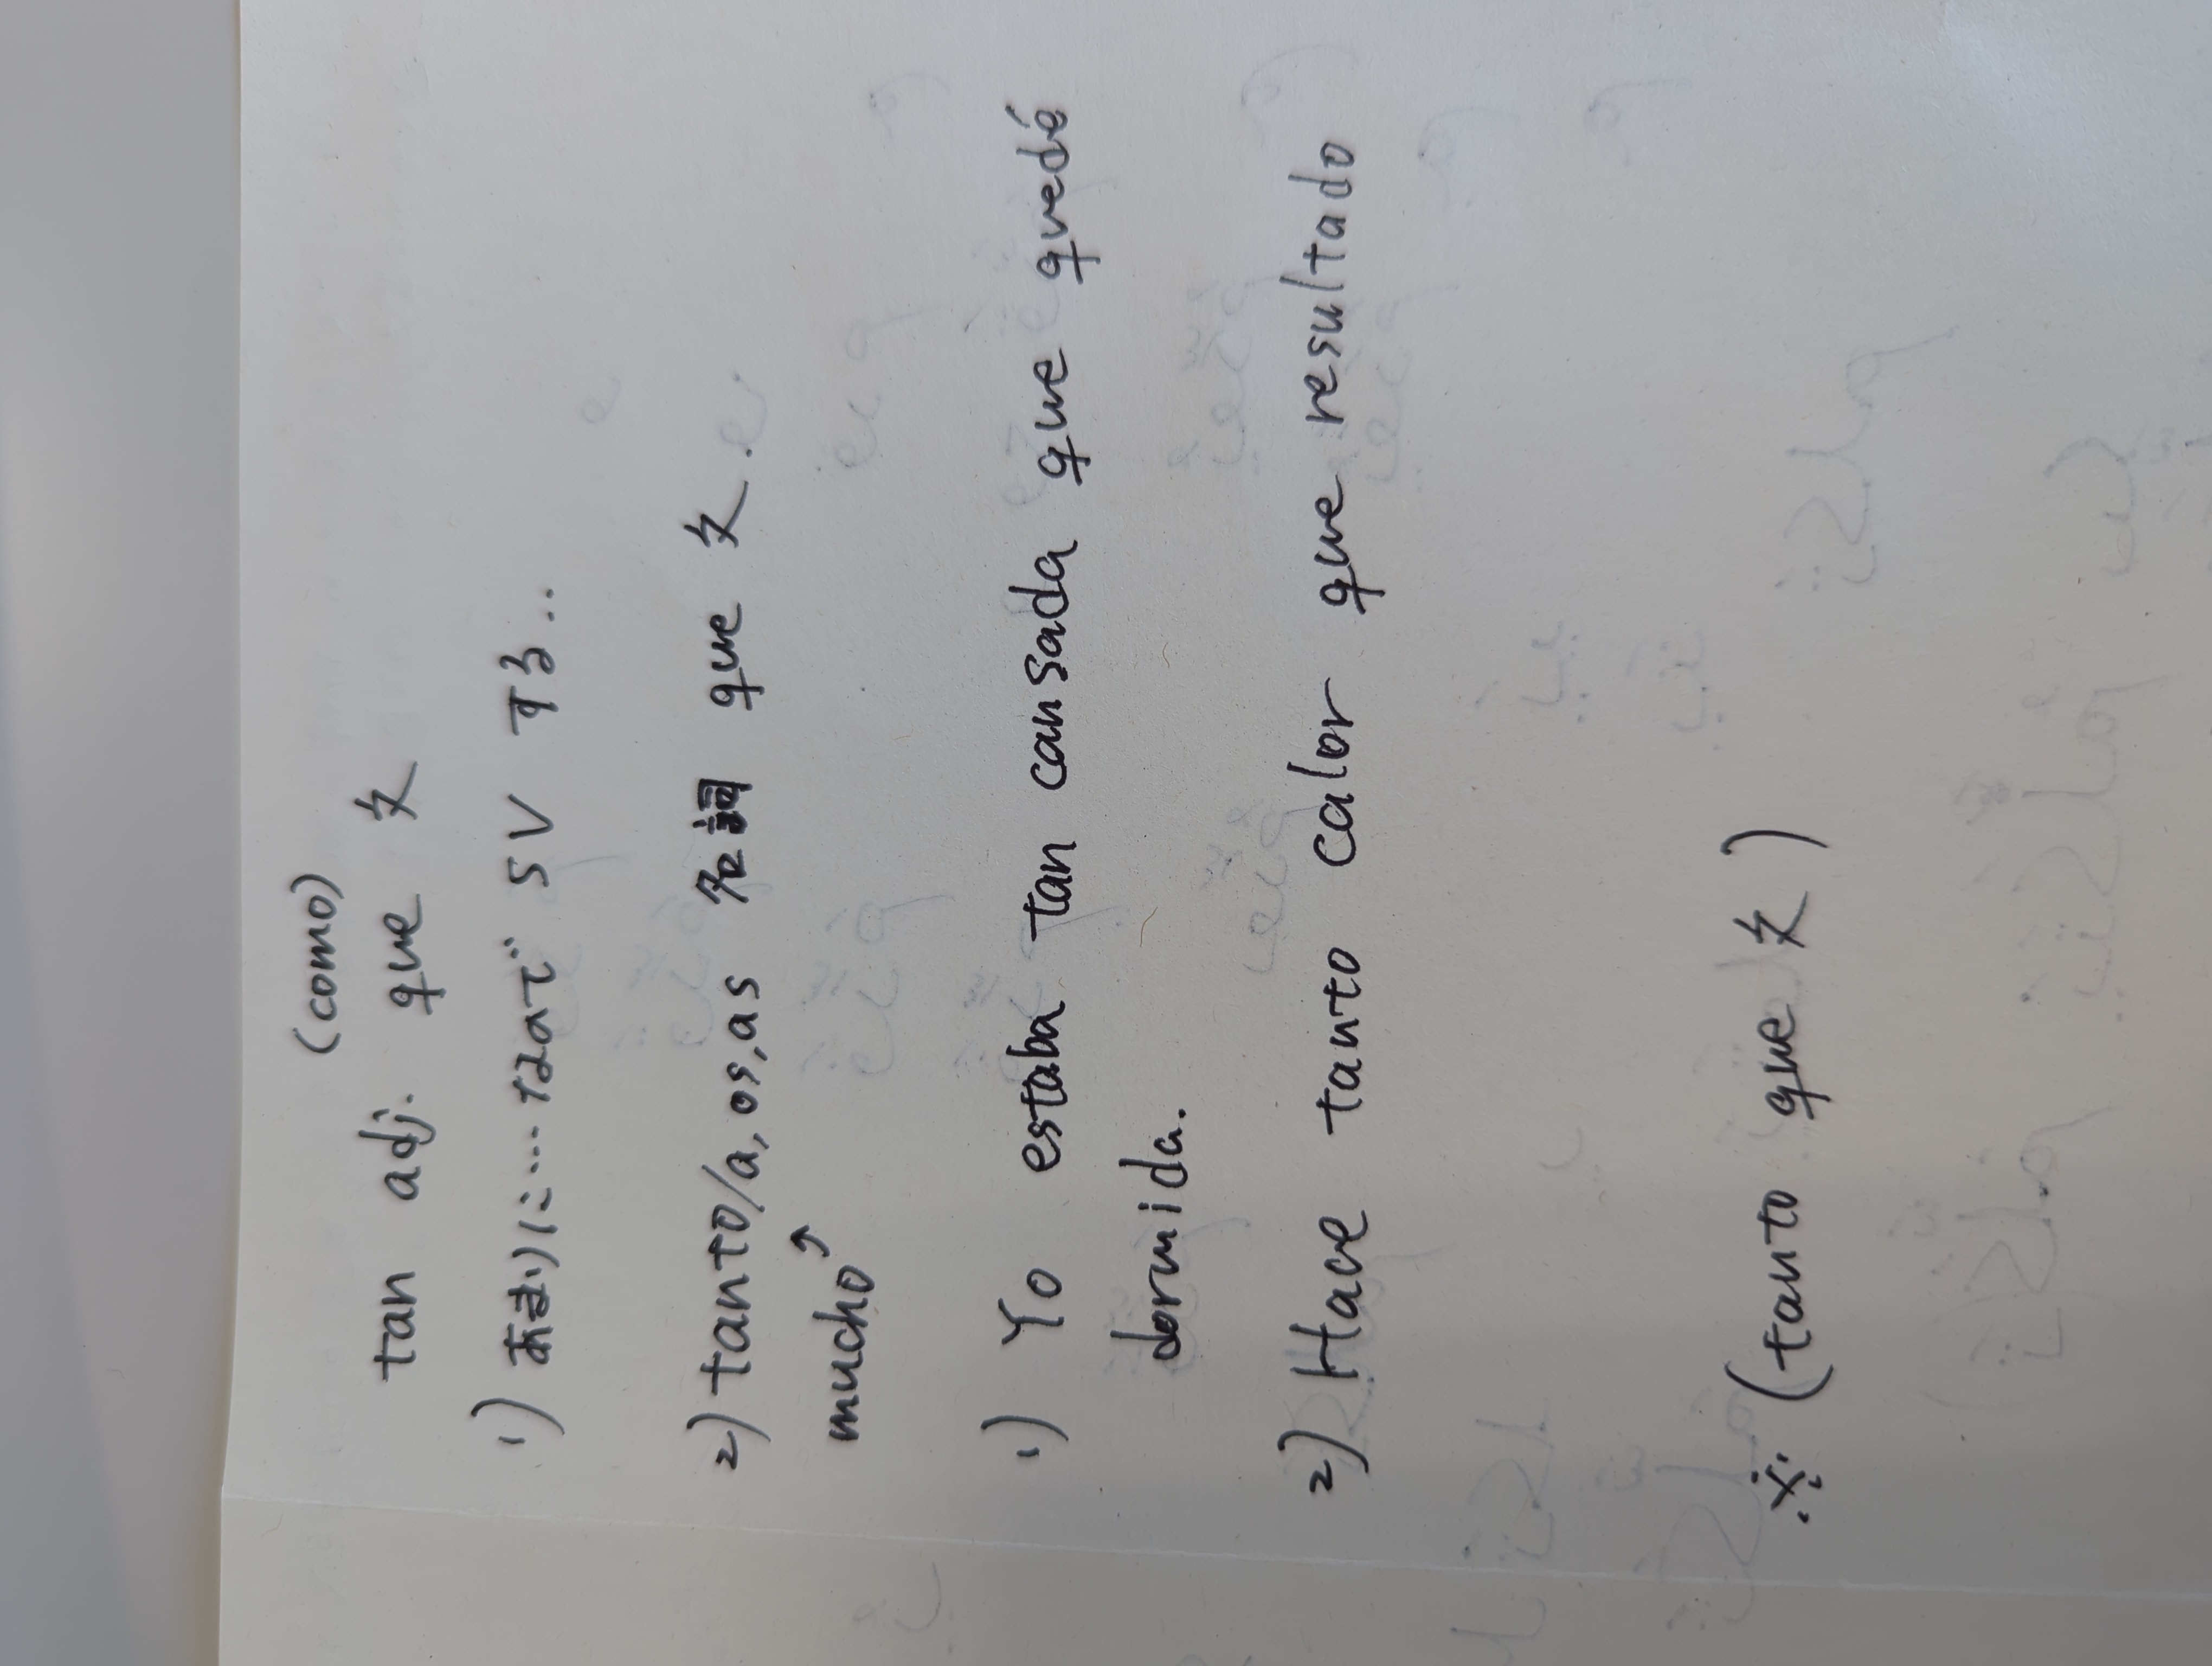 (como)
tan adj. que 文
1) あまりに…なので SV する..
2) tanto/a, os, as 名詞 que 文.
mucho↗
1) Yo estaba tan cansada que quedé
dormida.
2) Hace tanto calor que resultado
※ (tanto que 文)